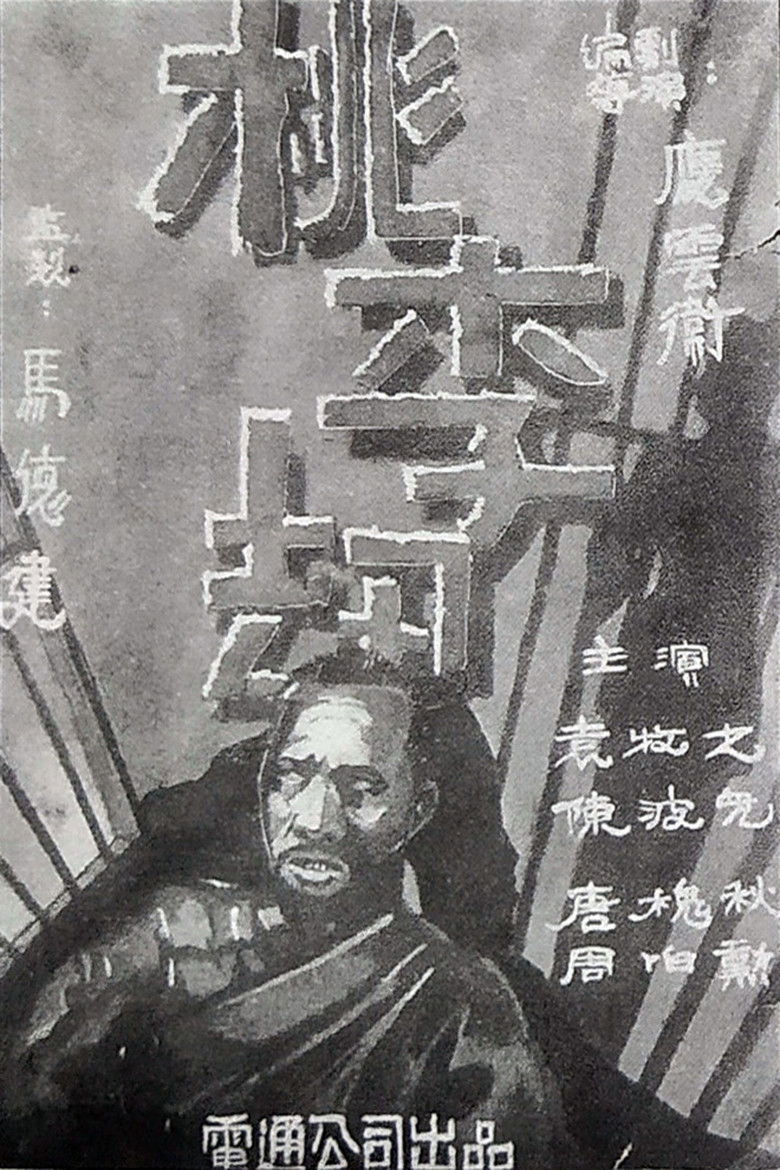 桃李劫
編劇
導演：
應雲衛
監製：馬德建
主演
袁牧之
陳波兒
唐槐秋
周伯勳
電通公司出品